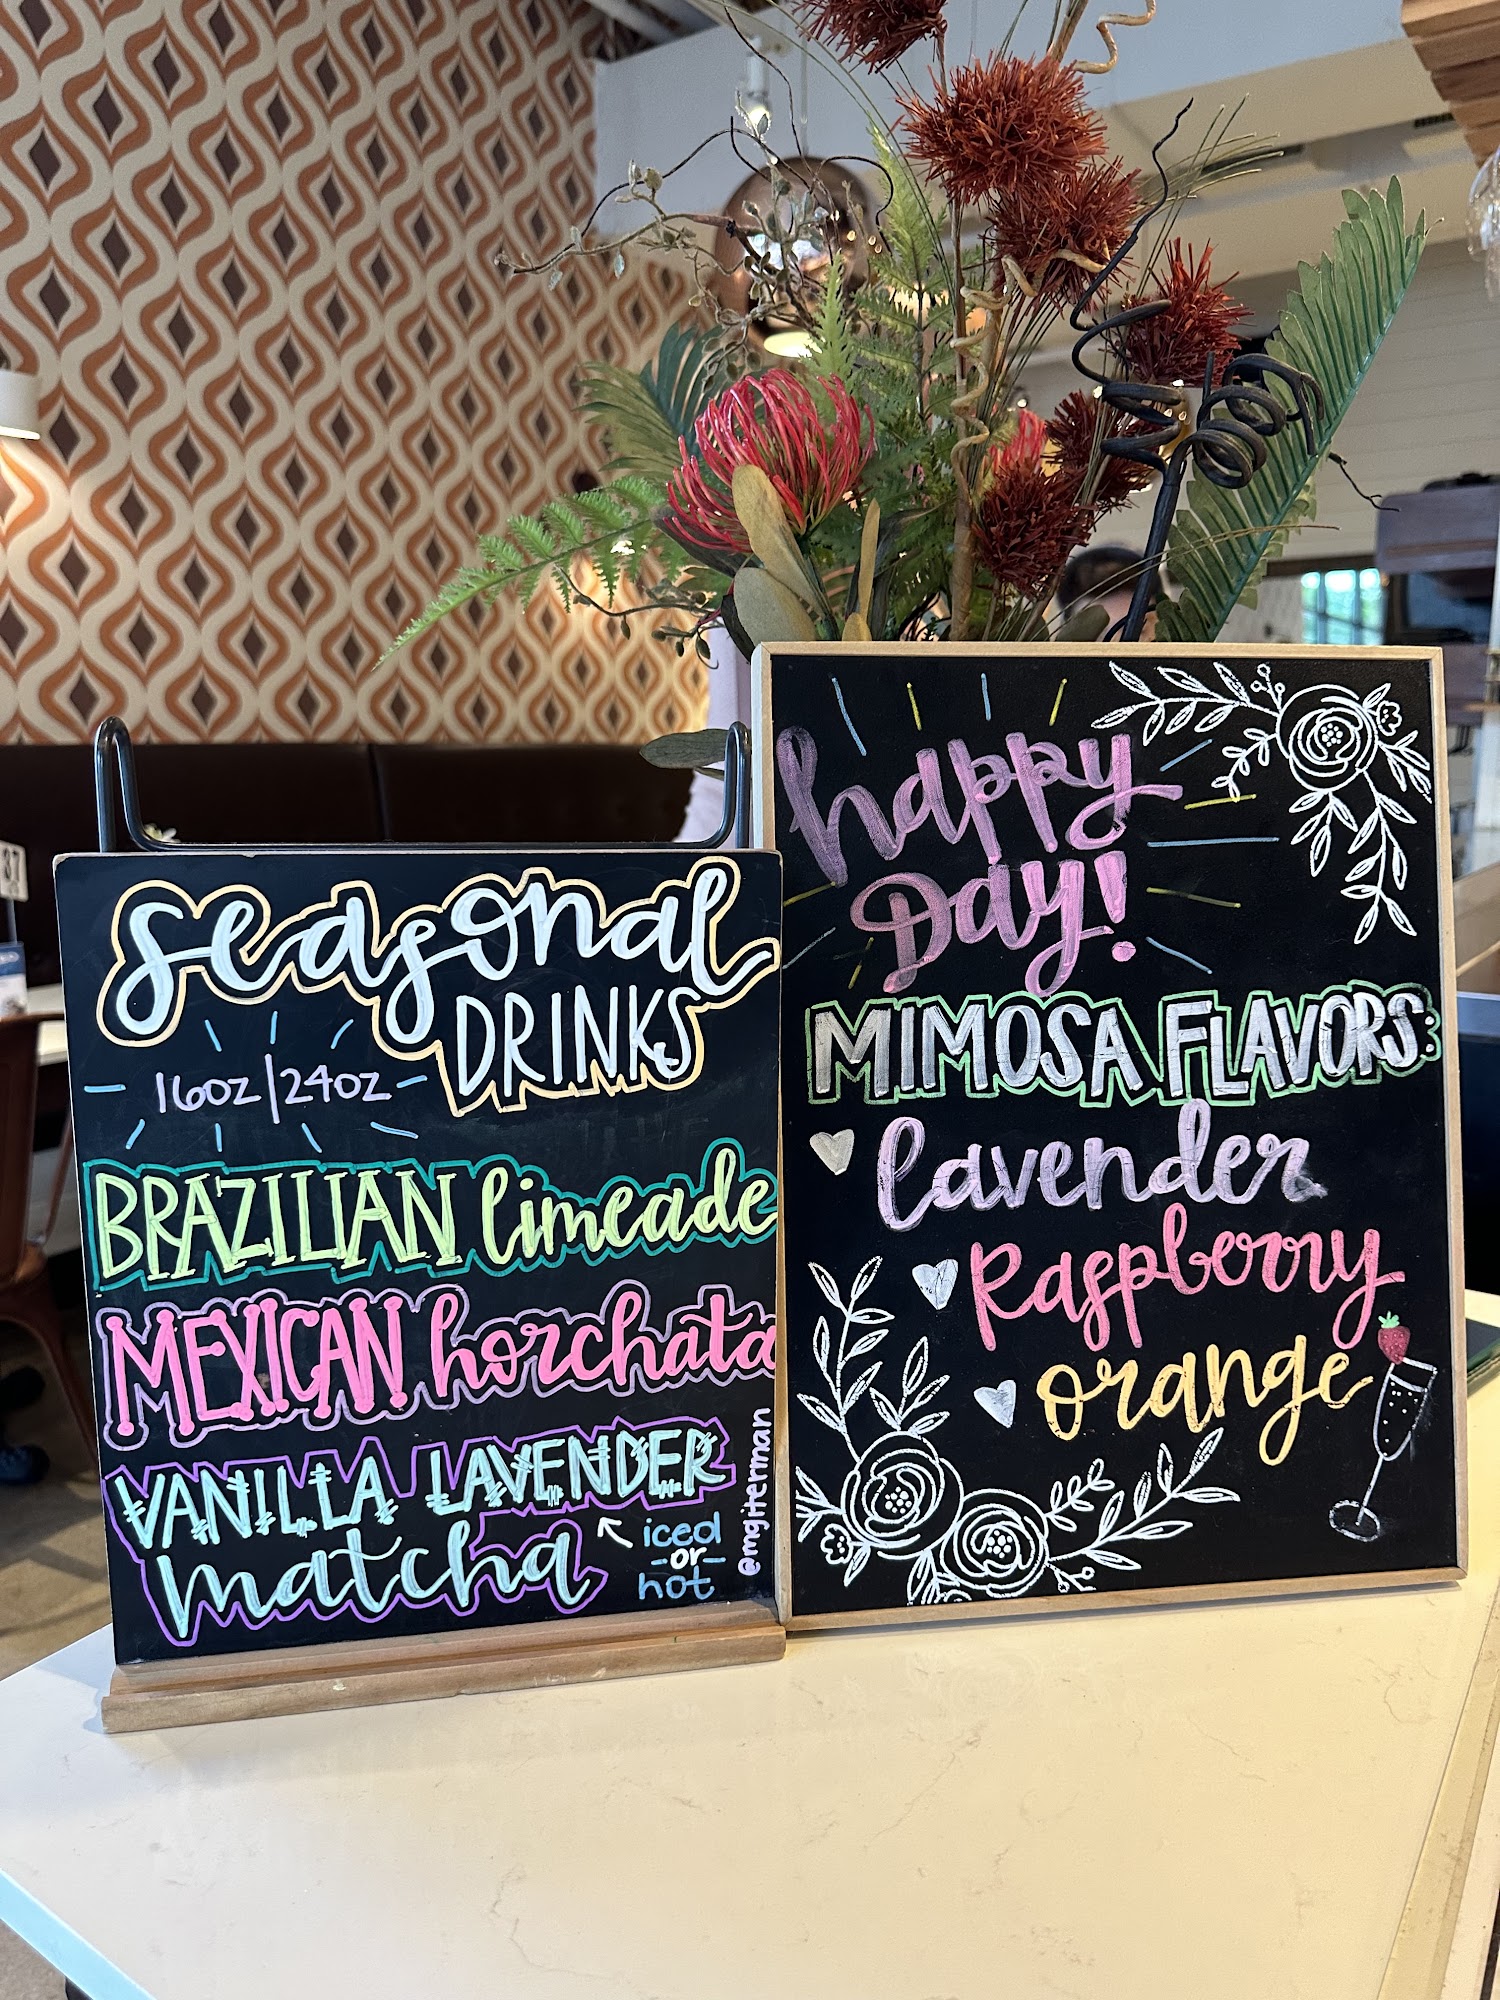 seasonal
DRINKS
16oz|24oz
BRAZILIAN limeade
MEXICAN horchata
VANILLA LAVENDER
matcha
iced
-or-
hot
@mgiterman
happy
Day!
MIMOSA FLAVORS:
lavender
Raspberry
orange
37